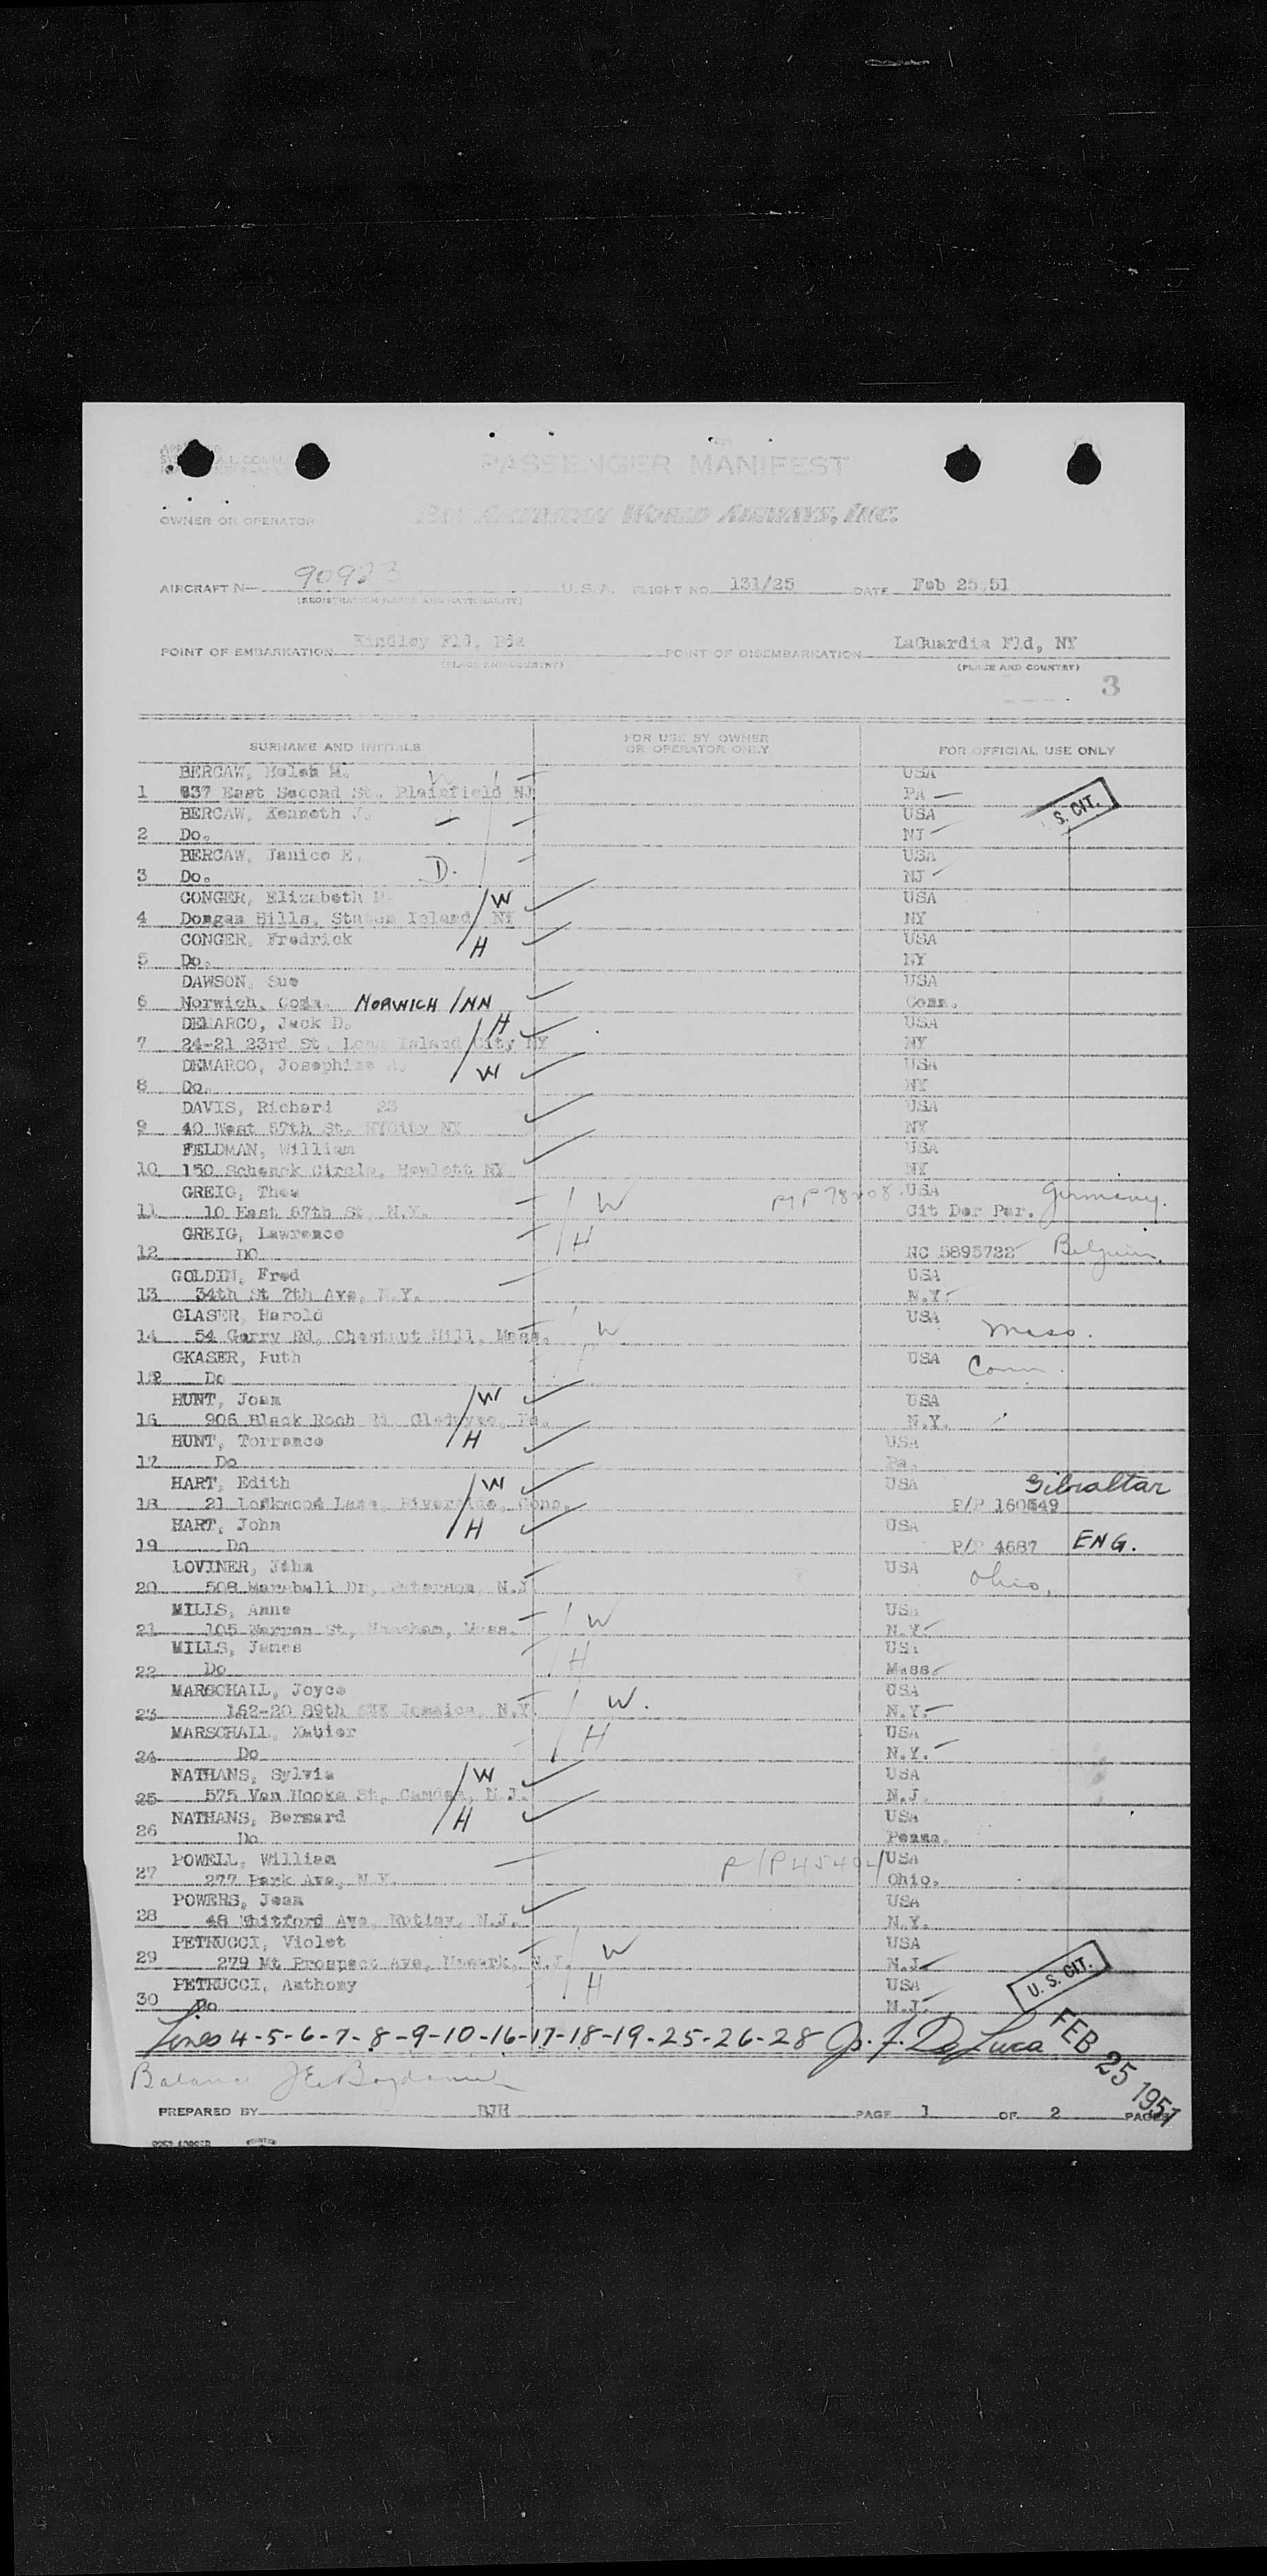 PASSENGER MANIFEST
OWNER OR OPERATOR PAN AMERICAN WORLD AIRWAYS, INC.
AIRCRAFT N— 90923 U.S.A. FLIGHT NO. 131/25 DATE Feb 25,51
(REGISTRATION MARKS AND NATIONALITY)
POINT OF EMBARKATION Kindley Fld, Bda POINT OF DISEMBARKATION LaGuardia Fld, NY
(PLACE AND COUNTRY) (PLACE AND COUNTRY)
3
SURNAME AND INITIALS FOR USE BY OWNER OR OPERATOR ONLY FOR OFFICIAL USE ONLY
BERCAW, Helen M. USA
1 637 East Second St. Plainfield NJ PA
S. CIT.
BERCAW, Kenneth J. USA
2 Do. NJ
BERCAW, Janice E. USA
3 Do. D. NJ
CONGER, Elizabeth W USA
4 Dongan Hills, Staten Island NY NY
CONGER, Fredrick H USA
5 Do. NY
DAWSON, Sue USA
6 Norwich, Conn. NORWICH /NN Conn.
DEMARCO, Jack D. H USA
7 24-21 23rd St, Long Island City NY NY
DEMARCO, Josephine W USA
8 Do. NY
DAVIS, Richard 23 USA
9 40 West 67th St. NYCity NY NY
FELDMAN, William USA
10 150 Schenck Circle, Hewlett NY NY
GREIG, Thea W USA
11 10 East 67th St, N.Y. Cit Der Par. Germany.
GREIG, Lawrence H
12 DO NC 5895722 Belgium.
GOLDIN, Fred USA
13 34th St 7th Ave, N.Y. N.Y.
GLASER, Harold W USA
14 54 Garry Rd, Chestnut Hill, Mass. Mass.
GKASER, Ruth USA
15 Do Conn.
HUNT, Joan W USA
16 906 Black Rock Rd. Pa. N.Y.
HUNT, Torrence H USA
17 Do Pa.
HART, Edith W USA Gibraltar
18 21 Lockwood Lane, Riverside, Conn. P/P 160549
HART, John H USA
19 Do P/P 4687 ENG.
LOVINER, John USA
20 508 Marshall Dr, Paterson, N.J Ohio.
MILLS, Anne W USA
21 105 Warren St, Needham, Mass. N.Y.
MILLS, James H USA
22 Do Mass.
MARSCHALL, Joyce W. USA
23 162-20 89th Jamaica, N.Y N.Y.
MARSCHALL, Xavier H USA
24 Do N.Y.
NATHANS, Sylvia W USA
25 575 Van Hooke St, Camden, N.J. N.J.
NATHANS, Bernard H USA
26 Do Penna.
POWELL, William P/P 45404 USA
27 277 Park Ave, N.Y. Ohio.
POWERS, Jean USA
28 48 Whitford Ave, Nutley, N.J. N.Y.
PETRUCCI, Violet W USA
29 279 Mt Prospect Ave, Newark, N.J. N.J.
PETRUCCI, Anthony H USA
30 Do N.J.
U. S. CIT.
Lines 4-5-6-7-8-9-10-16-17-18-19-25-26-28 J. F. DeLuca
FEB 25 1951
Balance
PREPARED BY BJH PAGE 1 OF 2 PAGES